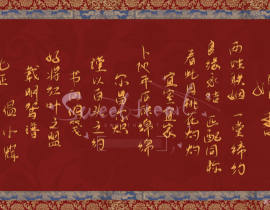 两姓联姻 一堂缔约
良缘永结 匹配同称
看此日桃花灼灼
宜室宜家
卜他年瓜瓞绵绵
尔昌尔炽
谨以白头之约
书向鸿笺
好将红叶之盟
载明鸳谱
此证